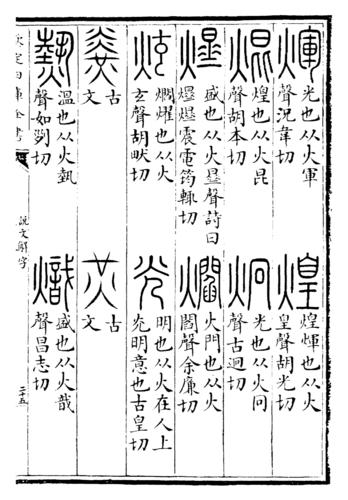 煇
光也从火軍
聲況韋切
煌
煌煇也从火
皇聲胡光切
焜
煌也从火昆
聲胡本切
炯
光也从火冋
聲古迥切
爗
盛也从火曅聲詩曰
爗爗震電筠輒切
爓
火門也从火
閻聲余廉切
炫
爓燿也从火
玄聲胡畎切
光
明也从火在人上
光明意也古皇切
古
文
古
文
熱
溫也从火埶
聲如列切
熾
盛也从火戠
聲昌志切
欽定四庫全書
說文解字
二十五